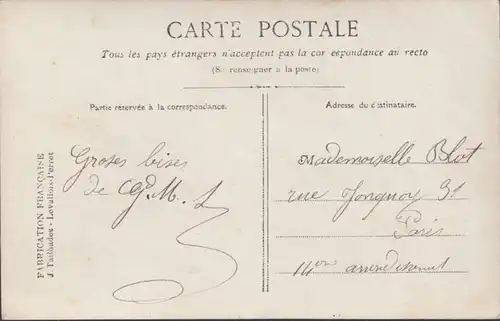 CARTE POSTALE
Tous les pays étrangers n'acceptent pas la cor espondance au recto
(S. renseigner à la poste)
Partie réservée à la correspondance.
Adresse du destinataire.
Groses bises
de G. M. L
Mademoiselle Blot
rue Jonquoy 31
Paris
14em arrondissement
FABRICATION FRANÇAISE
J. Tailhades - Levallois-Perret